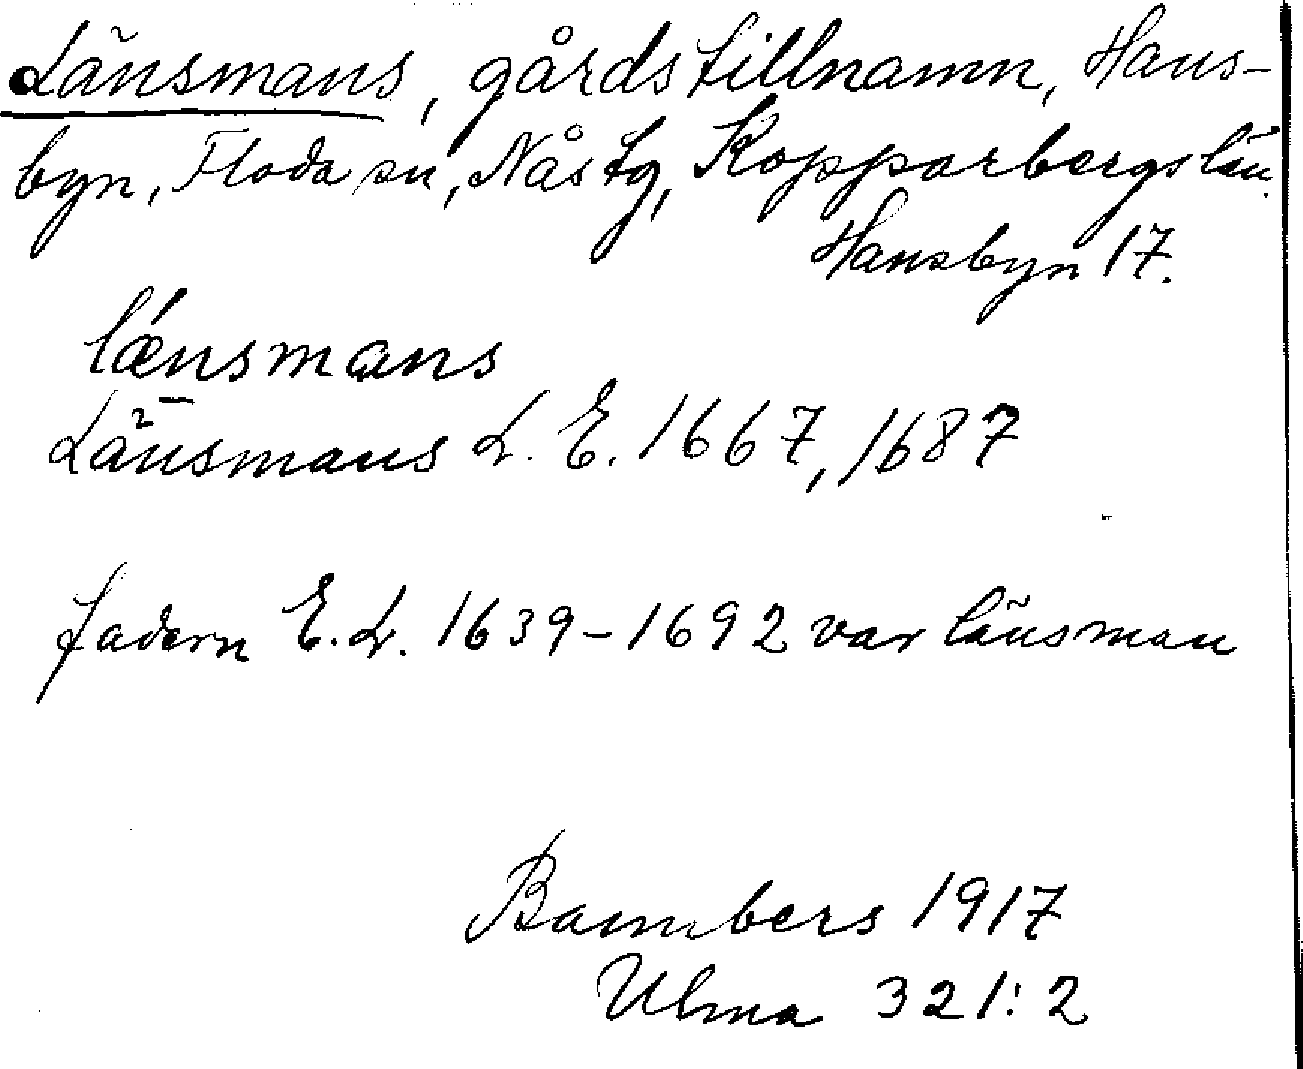 Länsmans, gårdstillnamn, Hans-
byn, Floda sn, Nås tg, Kopparbergs län.
Hansbyn 17.
lǽnsmans
Länsmans L. E. 1667, 1687
fadern E. L. 1639-1692 var länsman
Bannbers 1917
Ulma 321:2